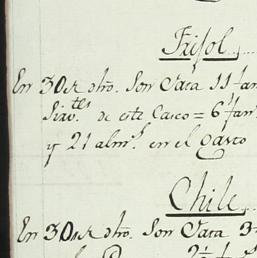 Frisol
En 30 de dho. Son Data 11 fan
Sirv.tes de este Casco = 6 fan.
y 21 alm.s en el Gasto
Chile
En 30 de dho. Son Data 3
2 1/2